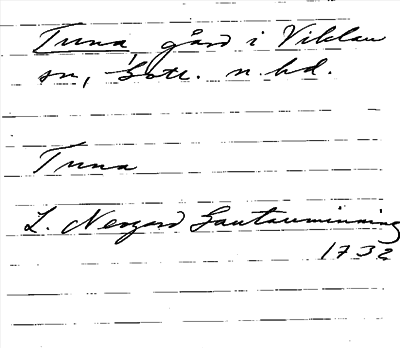 Tuna, gård i Viklau
sn, Gotl. n. hd.
Tuna
L. Neogard Gautauminning
1732